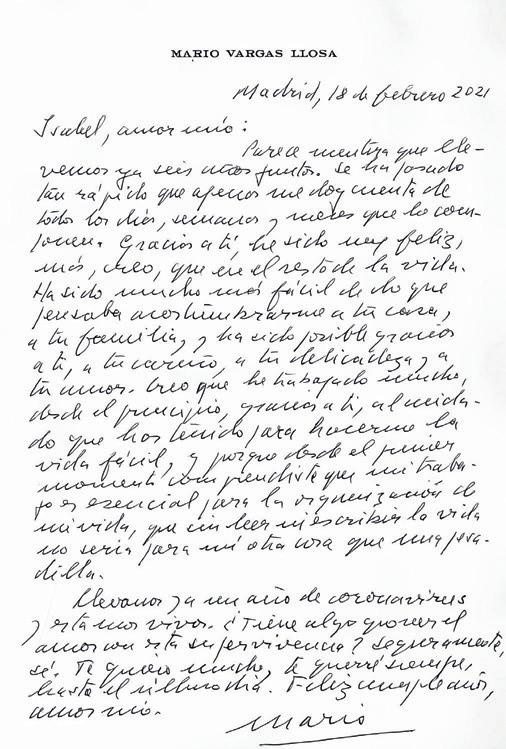 MARIO VARGAS LLOSA
Madrid, 18 de febrero 2021
Isabel, amor mío:
Parece mentira que lle-
vemos ya seis años juntos. Se ha pasado
tan rápido que apenas me doy cuenta de
todos los días, semanas y meses que lo com-
ponen. Gracias a ti, he sido muy feliz,
más, creo, que en el resto de la vida.
Ha sido mucho más fácil de lo que
pensaba acostumbrarme a tu casa,
a tu familia, y ha sido posible gracias
a ti, a tu cariño, a tu delicadeza y a
tu amor. Creo que he trabajado mucho,
desde el principio, gracias a ti, al cuida-
do que has tenido para hacerme la
vida fácil, y porque desde el primer
momento comprendiste que mi traba-
jo es esencial para la organización de
mi vida, que sin leer ni escribir la vida
no sería para mí otra cosa que una pesa-
dilla.
Llevamos ya un año de coronavirus
y estamos vivos. ¿Tiene algo que ver el
amor con esta supervivencia? Seguramente,
sí. Te quiero mucho, te querré siempre,
hasta el último día. Feliz cumpleaños,
amor mío.
Mario